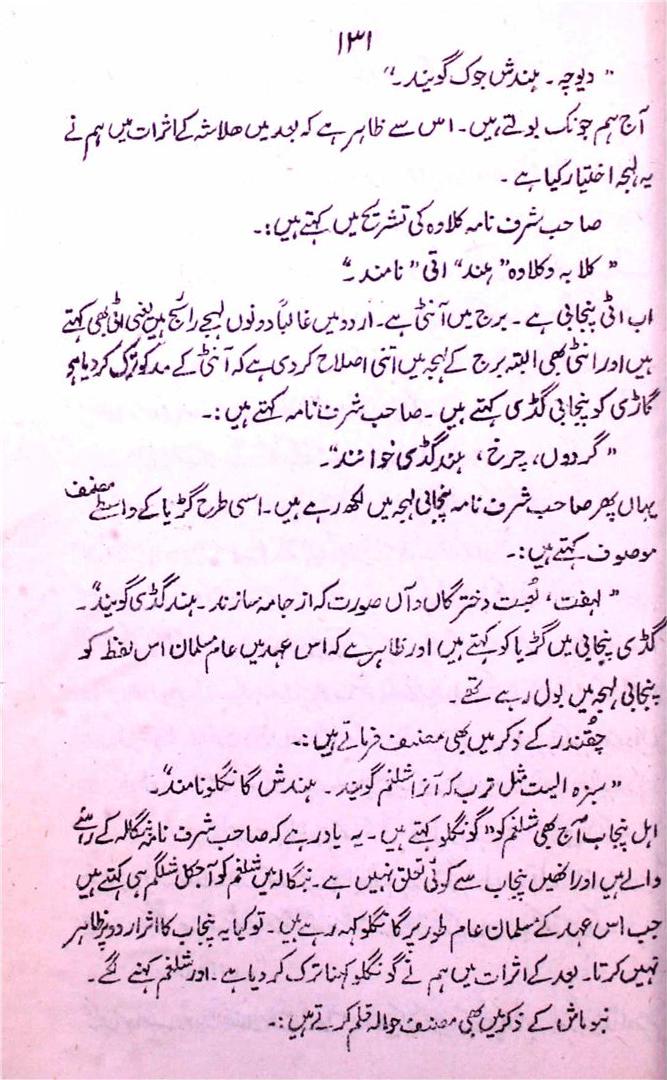 ۱۳۱
” دیوچہ ۔ ہندش جوک گویند ۔“
آج ہم جونک بولتے ہیں ۔ اس سے ظاہر ہے کہ بعد میں علاشہ کے اثرات میں ہم نے
یہ لہجہ اختیار کیا ہے ۔
صاحب شرف نامہ کلاوہ کی تشریح میں کہتے ہیں :۔
” کلابہ وکلاوہ “ ہند ” اٹی “ نامند ۔“
اب اٹی پنجابی ہے ۔ برج میں آنٹی ہے ۔ اردو میں غالباً دونوں لہجے رائج ہیں یعنی اٹی بھی کہتے
ہیں اور انٹی بھی البتہ برج کے لہجہ میں اتنی اصلاح کر دی ہے کہ آنٹی کے مد کو ترک کر دیا ہو
گاڑی کو پنجابی گڈی کہتے ہیں ۔ صاحب شرف نامہ کہتے ہیں :۔
” گردوں، چرخ ، ہند گڈی خوانند “۔
یہاں پھر صاحب شرف نامہ پنجابی لہجہ میں لکھ رہے ہیں ۔ اسی طرح گڑیا کے واسطے مصنف
موصوف کہتے ہیں :۔
” لہفت ، لُعبت دخترگاں و آں صورت کہ از جامہ سازند ۔ ہند گڈی گویند “۔
گڈی پنجابی میں گڑیا کو کہتے ہیں اور ظاہر ہے کہ اس عہد میں عام مسلمان اس لفظ کو
پنجابی لہجہ میں بول رہے تھے ۔
چقندر کے ذکر میں بھی مصنف فرماتے ہیں :۔
” سبزہ ایست مثل ترب کہ آنرا شلغم گویند ۔ ہندش گانگلو نامند “۔
اہل پنجاب آج بھی شلغم کو ” گونگلو کہتے ہیں ۔ یہ یاد رہے کہ صاحب شرف نامہ بنگالہ کے رہنے
والے ہیں اور انھیں پنجاب سے کوئی تعلق نہیں ہے ۔ بنگالہ میں شلغم کو آجکل شلگم ہی کہتے ہیں
جب اس عہد کے مسلمان عام طور پر گانگلو کہہ رہے ہیں ۔ تو کیا یہ پنجاب کا اثر اردو پر ظاہر
نہیں کرتا ۔ بعد کے اثرات میں ہم نے گونگلو کہنا ترک کر دیا ہے ۔ اور شلغم کہنے لگے ۔
بوباش کے ذکر میں بھی مصنف حوالہ قلم کرتے ہیں :۔